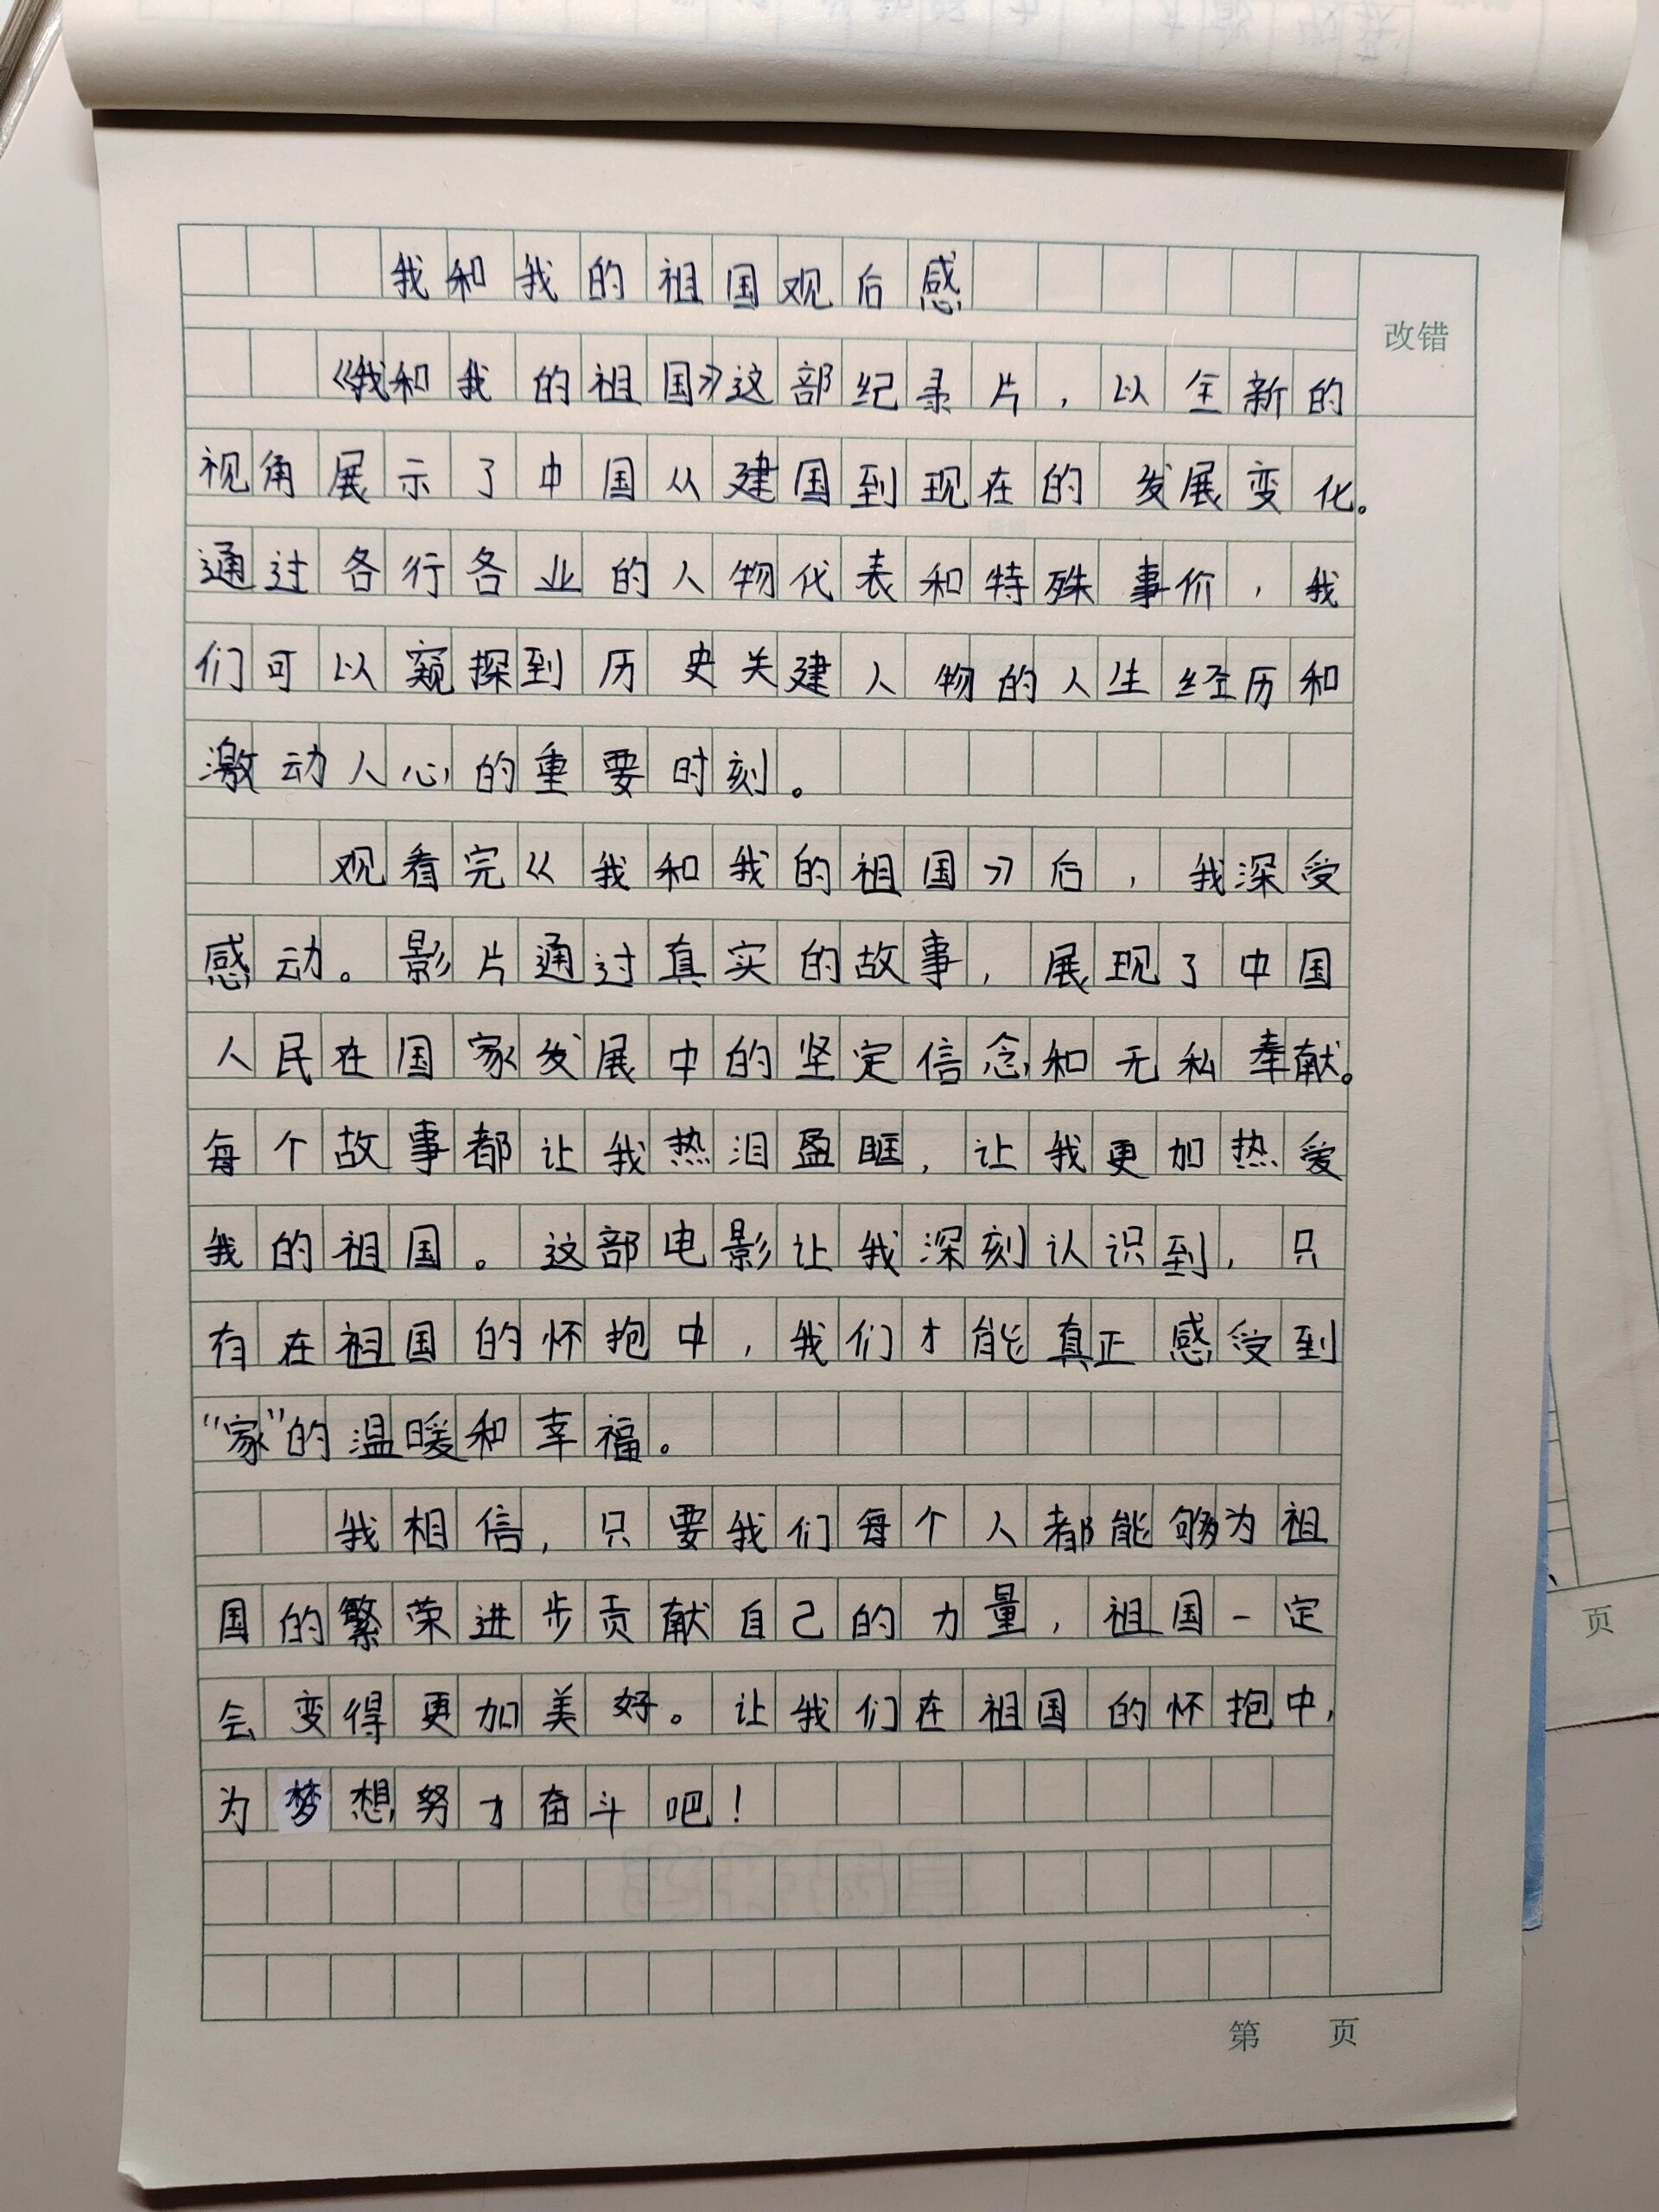 我和我的祖国观后感
改错
《我和我的祖国》这部纪录片，以全新的
视角展示了中国从建国到现在的发展变化。
通过各行各业的人物代表和特殊事价，我
们可以窥探到历史关建人物的人生经历和
激动人心的重要时刻。
观看完《我和我的祖国》后，我深受
感动。影片通过真实的故事，展现了中国
人民在国家发展中的坚定信念和无私奉献。
每个故事都让我热泪盈眶，让我更加热爱
我的祖国。这部电影让我深刻认识到，只
有在祖国的怀抱中，我们才能真正感受到
“家”的温暖和幸福。
我相信，只要我们每个人都能够为祖
国的繁荣进步贡献自己的力量，祖国一定
会变得更加美好。让我们在祖国的怀抱中，
为梦想努力奋斗吧！
第 页
页